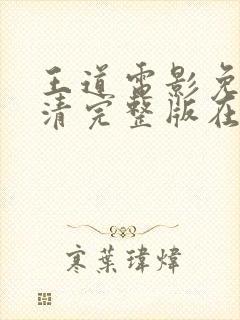 王道雷影免
清完整版在
寒葉瑋煒